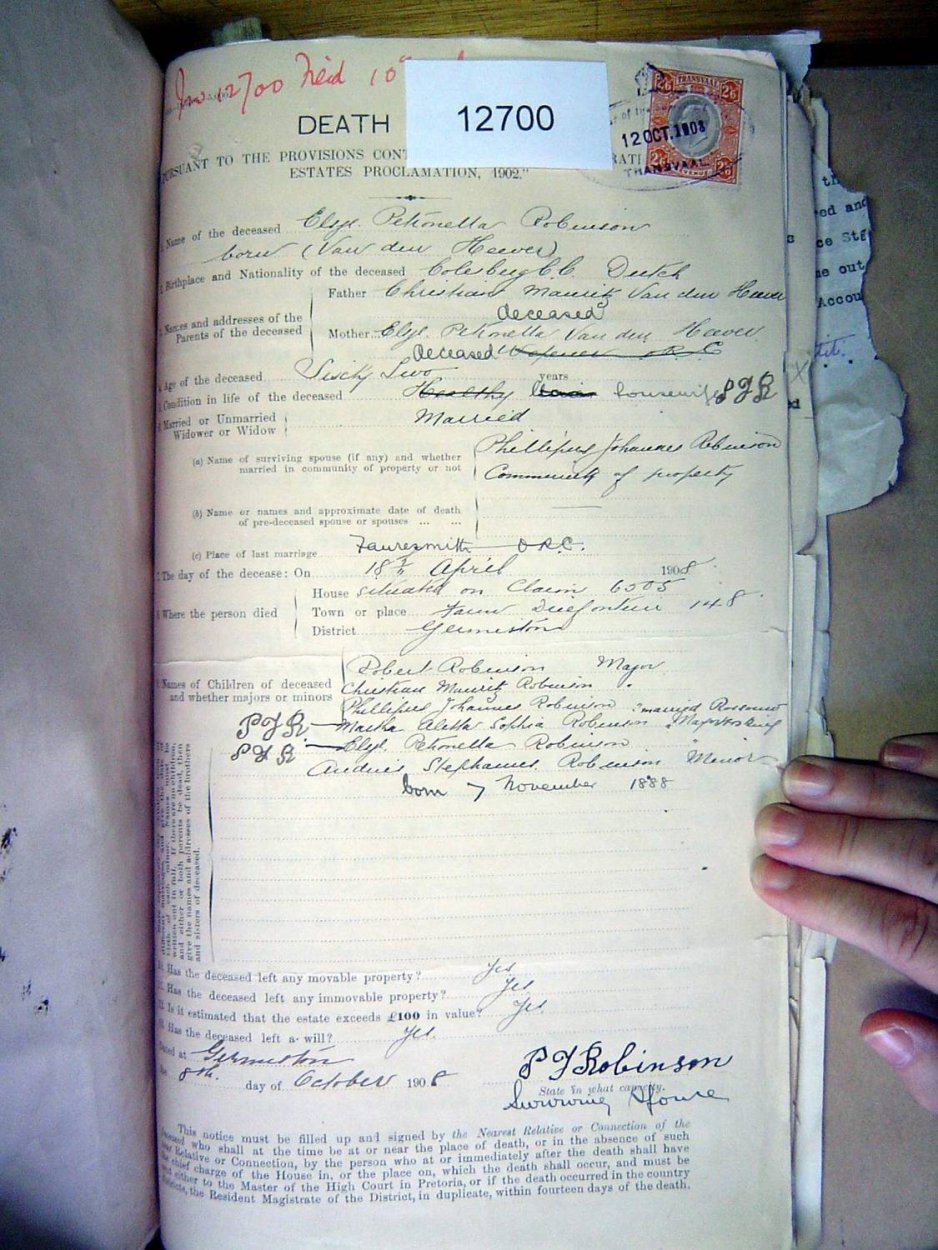 No 12700 Filed 10
12700
TRANSVAAL
2/6 2/6
12 OCT. 1908
TRANSVAAL
2/6 REVENUE 2/6
DEATH
PURSUANT TO THE PROVISIONS
ESTATES PROCLAMATION, 1902."
Name of the deceased Elsje Petronella Robinson
born (Van den Heever)
Birthplace and Nationality of the deceased Colesburg C.C. Dutch
Names and addresses of the Parents of the deceased
Father Christian Mauritz Van den Heever
deceased
Mother Elsje Petronella Van den Heever
deceased Wepener O.R.C
Age of the deceased Sixty Two years
Condition in life of the deceased Healthy housewife PJR
Married or Unmarried Married
Widower or Widow
(a) Name of surviving spouse (if any) and whether married in community of property or not
Phillipus Johannes Robinson
Community of property
(b) Name or names and approximate date of death of pre-deceased spouse or spouses ... ...
(c) Place of last marriage Fauresmith O.R.C.
The day of the decease: On 18th April 1908.
Where the person died
House situated on Claim 6505
Town or place Farm Driefontein 148
District Germiston
Names of Children of deceased and whether majors or minors
Robert Robinson Major
Christian Mauritz Robinson "
Phillipus Johannes Robinson "
PJR Martha Aletta Sophia Robinson married
PJR Elsje Petronella Robinson
Andries Stephanus Robinson Minor
born 7 November 1888
written out in full. If there are no children, and either or both parents be dead, then give the names and addresses of the brothers and sisters of deceased.
Has the deceased left any movable property? Yes
Has the deceased left any immovable property? Yes
Is it estimated that the estate exceeds £100 in value? Yes
Has the deceased left a will? Yes.
Dated at Germiston
the 8th. day of October 1908
P J Robinson
State in what capacity.
Surviving Spouse
This notice must be filled up and signed by the Nearest Relative or Connection of the
deceased who shall at the time be at or near the place of death, or in the absence of such
near Relative or Connection, by the person who at or immediately after the death shall have
the chief charge of the House in, or the place on, which the death shall occur, and must be
sent either to the Master of the High Court in Pretoria, or if the death occurred in the country
Districts, the Resident Magistrate of the District, in duplicate, within fourteen days of the death.